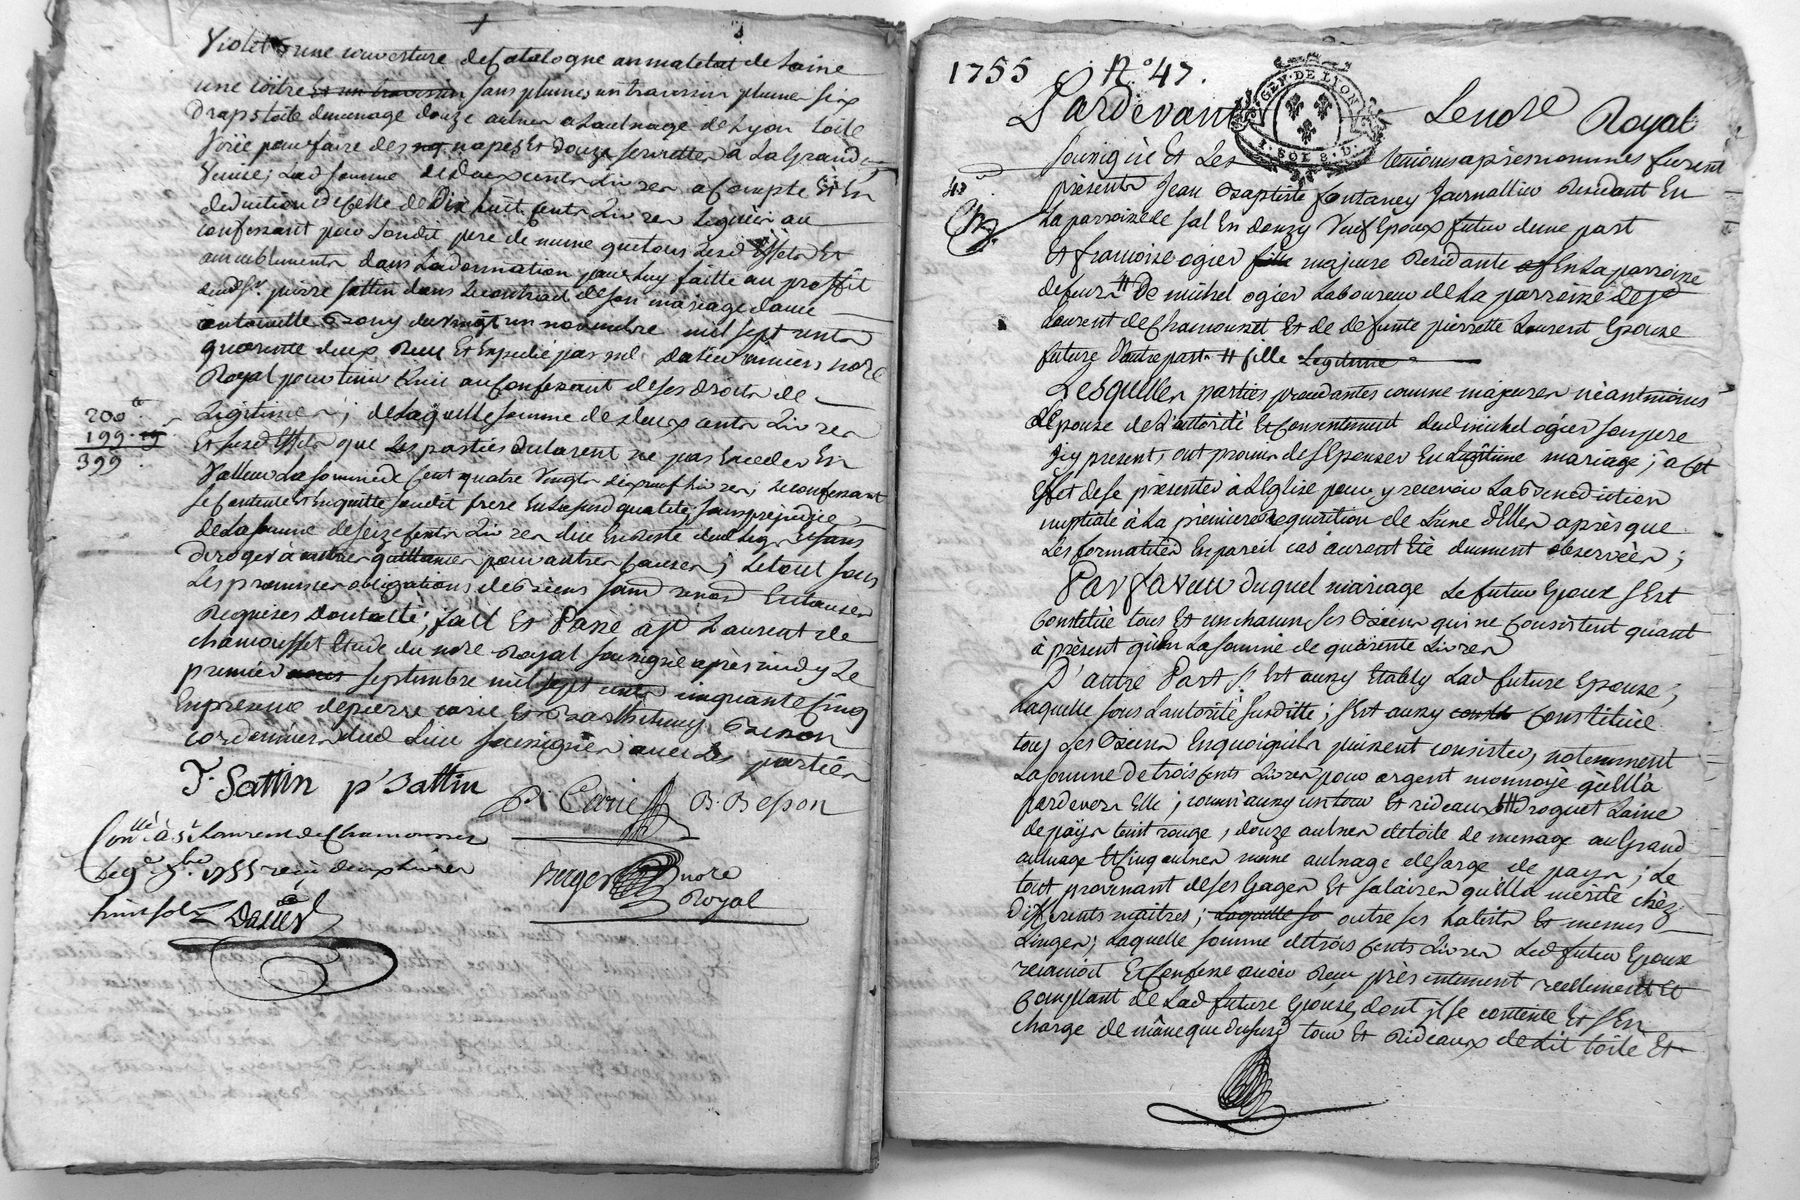 Violet & une couverture de Catalogne un matelat de Laine
une coitre et un traversin sans plumes, un traversin plume six
Draps toile de menage douze aulnes a L'aulnage de Lyon toile
pour faire des nap napes Et Douze serviettes à La Grande
Venise; Lad somme de deux cents Livres a Compte Et En
deduction de Celle de Dix huit cents Livres Leguée au
confessant par Sondit pere de meme que tous Lesd Effets Et
ameublements dans La donnation par Luy faitte au proffit
dud Sr. pierre Sattin dans Le contract de son mariage d'avec
antoinette du vingt un novembre mil sept cents
quarente deux Reçu Et Expedié par me. notre
Royal pour tenir Lieu au Confessant de ses droits de
Legitimes; de Laquelle somme de deux cents Livres
Et susd Effets que Les parties declarent ne pas Exceder En
Valleur La somme de Cent quatre Vingts dix neuf Livres; Le confessant
se Contente Et En quitte sondit frere En La susd qualité, sans prejudice
de La somme de seize Cents Livres due En Reste dud Legs Et sans
deroger à autres quittances pour autres Causes; Le tout sous
Les promesses obligations de Biens soumd renond Et clauses
Requises Dont acte; fait Et Passé à St Laurent de
chamousset Etude du notre Royal soussigné après midy Le
premier septembre mil sept cents cinquante Cinq
En presence de pierre carie Et Barthelemy Besson
cordonniers dud Lieu soussignés avec Les parties
200 tt
199. 19
399.
F. Sattin p. Sattin
P. Carie B. Besson
Conllé à St Laurent de Chamousset
Le 9e 7bre. 1755 reçu deux Livres
huit sols
Berger notre
Royal
1755 N.° 47.
GEN. DE LYON
1. SOL 8. D.
Pardevant Le notre Royal
soussigné Et Les temoins après nommés furent
43
présents Jean Baptiste fontaney Journallier Residant En
La parroisse de Sal En donzy Veuf Epoux futur d'une part
Et francoise ogier fille majeure Residante En La parroisse
de feurs # De michel ogier Laboureur de La parroisse de St
Laurent de Chamousset Et de defunte pierrette Laurent Epouse
future D'autre part # fille Legitime
Lesquelles parties procedantes comme majeures néantmoins
L'Epouse de L'autorité Et Consentement dud michel ogier son pere
Jcy present, ont promis de s'Epouser En Legitime mariage; a Cet
Effet de se présenter à L'Eglise pour y recevoir La Benediction
nuptiale à La premiere Requisition de L'une d'Elles après que
Les formalités En pareil cas auront Eté duement observées;
Par faveur Duquel mariage Le futur Epoux s'Est
Constitué tous Et un chacun ses Biens qui ne Consistent quant
à présent qu'En La somme de quarente Livres
D'autre Part s'Est aussy Etably Lad future Epouse;
Laquelle sous L'autorité susditte; s'Est aussy const Constituée
tous ses Biens En quoi qu'ils puissent consister, notemment
La somme de trois Cents Livres pour argent monnoyé qu'Ell'a
pardevers Elle; comm'aussy un tour Et rideaux droguet Laine
de païs teint rouge, douze aulnes de toile de menage au Grand
aulnage Et Cinq aulnes meme aulnage de sarge de pays; Le
tout provenant de ses Gages Et salaires qu'Ell'a mérité chez
differents maitres; Laquelle so outre ses habits Et menus
Linges; Laquelle somme de trois Cents Livres Led futur Epoux
reconnoit Et Confesse avoir Reçu présentement reellement Et
Comptant de Lad future Epouse, dont Jl se contente Et s'En
charge de même que du susd tour Et Rideaux de Lit toile Et